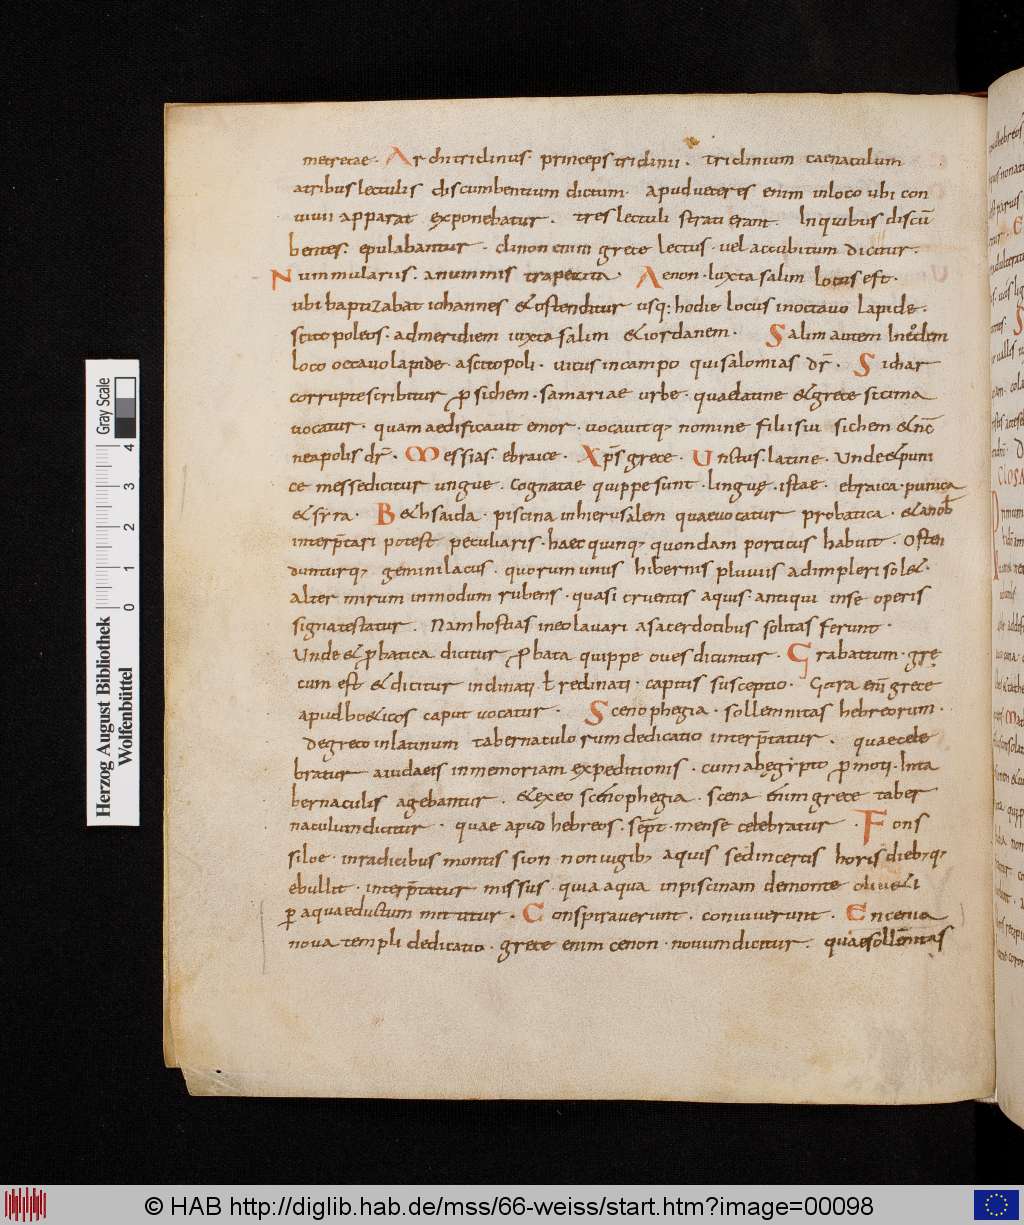 metretae · Architriclinus · princeps triclinii · triclinium caenaculum
a tribus lectulis discumbentium dictum · apud veteres enim in loco ubi con
vivii apparat exponebatur · tres lectuli strati erant · In quibus discū
bentes · epulabantur · clinon enim grece lectus · vel accubitum dicitur ·
Nummularius · a nummis trapezita · Aenon · Iuxta salim locus est ·
ubi baptizabat iohannes & ostenditur usq; hodie locus in octavo lapide ·
scitopoleos · ad meridiem iuxta salim & iordanem · Salim autem In eodem
loco octavo lapide · a scitopoli · vicus in campo qui salomias dr̄ · Sichar
corrupte scribitur p sichem · samariae urbe · quae latine & grece sicima
vocatur · quam aedificavit emor · vocavitq; nomine filii sui sichem & nc̄
neapolis dr̄ · Messias · ebraice · Xp̄s grece · Unctus · latine · Unde & puni
ce messe dicitur ungue · Cognatae quippe sunt · linguę · istae · ebraica · punica
& syra · B&hsaida · piscina in hierusalem quae vocatur probatica · & a nob̄
interp̄tari potest peculiaris · haec quinq; quondam porticus habuit · Osten
dunturq; gemini lacus · quorum unus hibernis pluviis adimpleri sol& ·
alter mirum in modum rubens · quasi cruentis aquis · antiqui in se operis
signa testatur · Nam hostias in eo lavari a sacerdotibus solitas ferunt ·
Unde & pbatica dicitur pbata quippe oves dicuntur · Grabattum · grę
cum est & dicitur inclinati · ł reclinati · capitis susceptio · Cara enī grece
apud boeticos caput vocatur · Scenophegia · sollemnitas hebreorum ·
de greco in latinum tabernaculorum dedicatio interp̄tatur · quae cele
bratur a iudaeis in memoriam expeditionis · cum ab ęgipto pmoti · In ta
bernaculis agebantur · & ex eo scenophegia · scena enim grece taber
naculum dicitur · quae apud hebreos · sept̄ · mense celebratur · Fons
siloe · in radicibus montis sion · non iugib; aquis sed incertis horis dieb;q;
ebullit · interp̄tatur missus · quia aqua in piscinam de monte oliv&i
p aquaeductum mittitur · Conspiraverunt · conviverunt · Encenia
nova templi dedicatio · grece enim cenon · novum dicitur · quae sollēnitas
Gray Scale
4 3 2 1 0
Herzog August Bibliothek
Wolfenbüttel
© HAB http://diglib.hab.de/mss/66-weiss/start.htm?image=00098